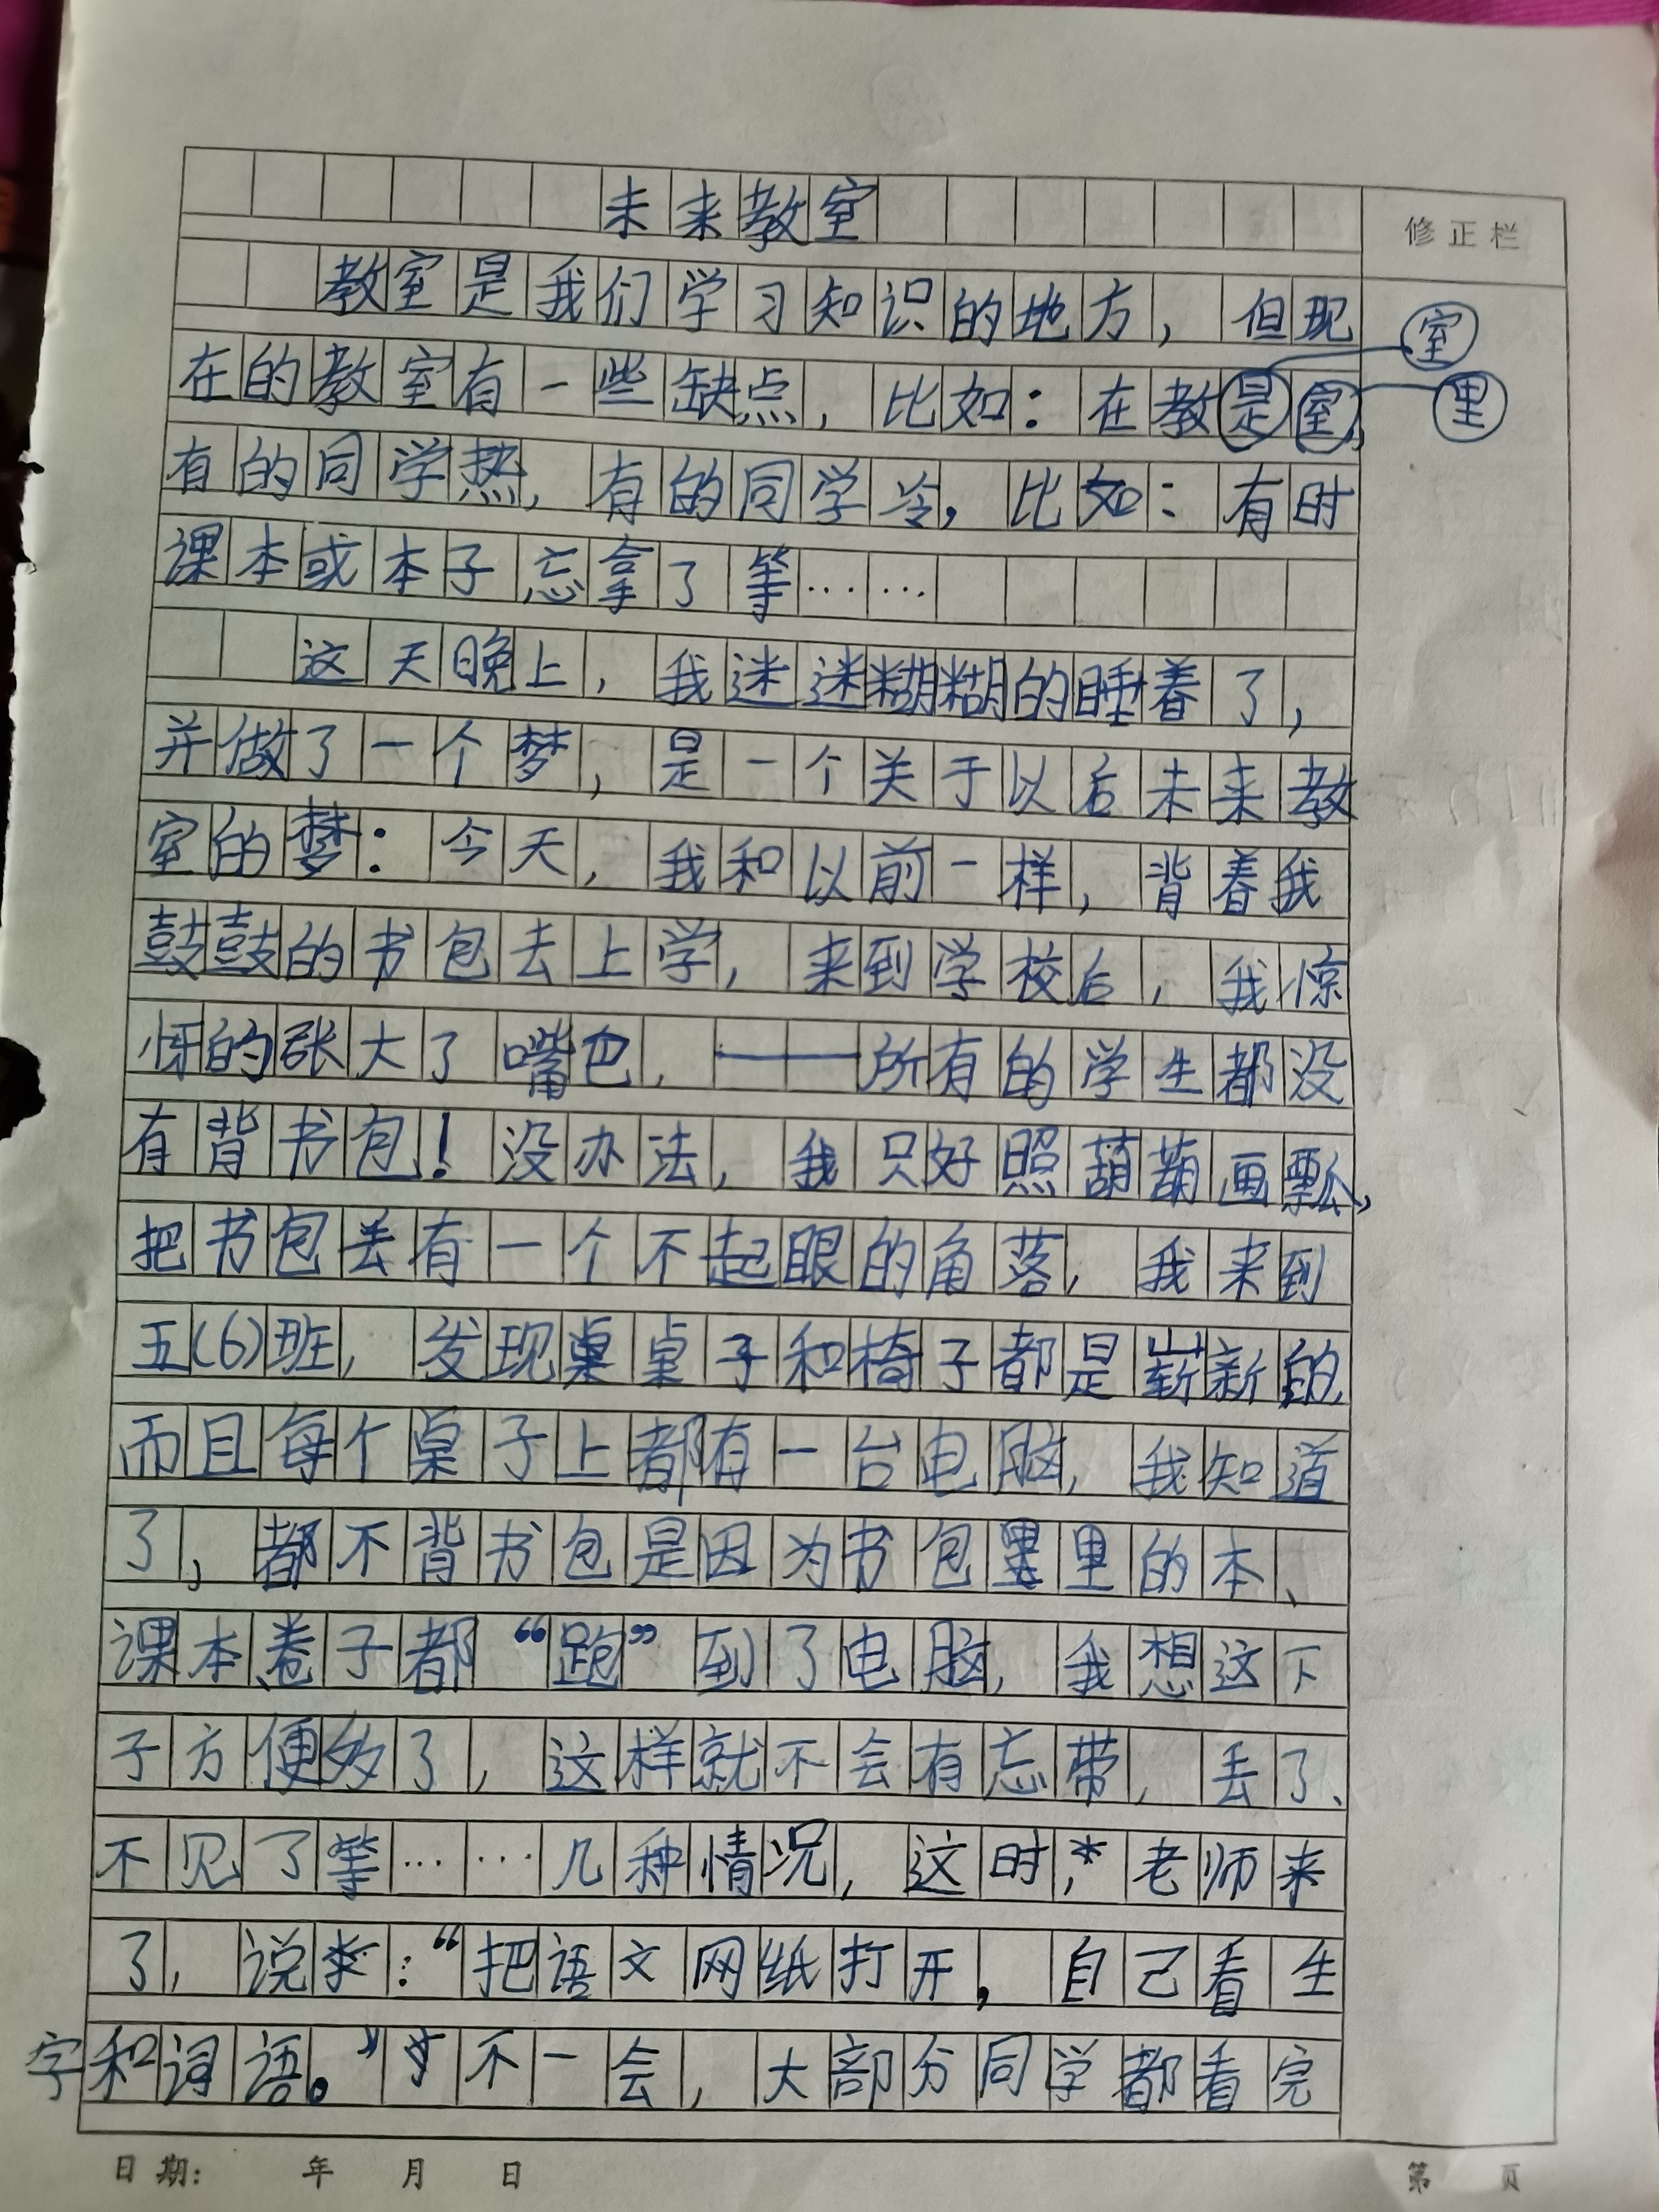 未来教室
修正栏
教室是我们学习知识的地方，但现
在的教室有一些缺点，比如：在教是室，
室
里
有的同学热，有的同学冷，比如：有时
课本或本子忘拿了等……
这天晚上，我迷迷糊糊的睡着了，
并做了一个梦，是一个关于以后未来教
室的梦：今天，我和以前一样，背着我
鼓鼓的书包去上学，来到学校后，我惊
讶的张大了嘴巴，——所有的学生都没
有背书包！没办法，我只好照葫葫画瓢，
把书包丢有一个不起眼的角落，我来到
五(6)班，发现桌桌子和椅子都是崭新的，
而且每个桌子上都有一台电脑，我知道
了，都不背书包是因为书包里的本、
课本卷子都“跑”到了电脑，我想这下
子方便多了，这样就不会有忘带，丢了、
不见了等……几种情况，这时，老师来
了，说：“把语文网纸打开，自己看生
字和词语。”不一会，大部分同学都看完
日期： 年 月 日
第 页